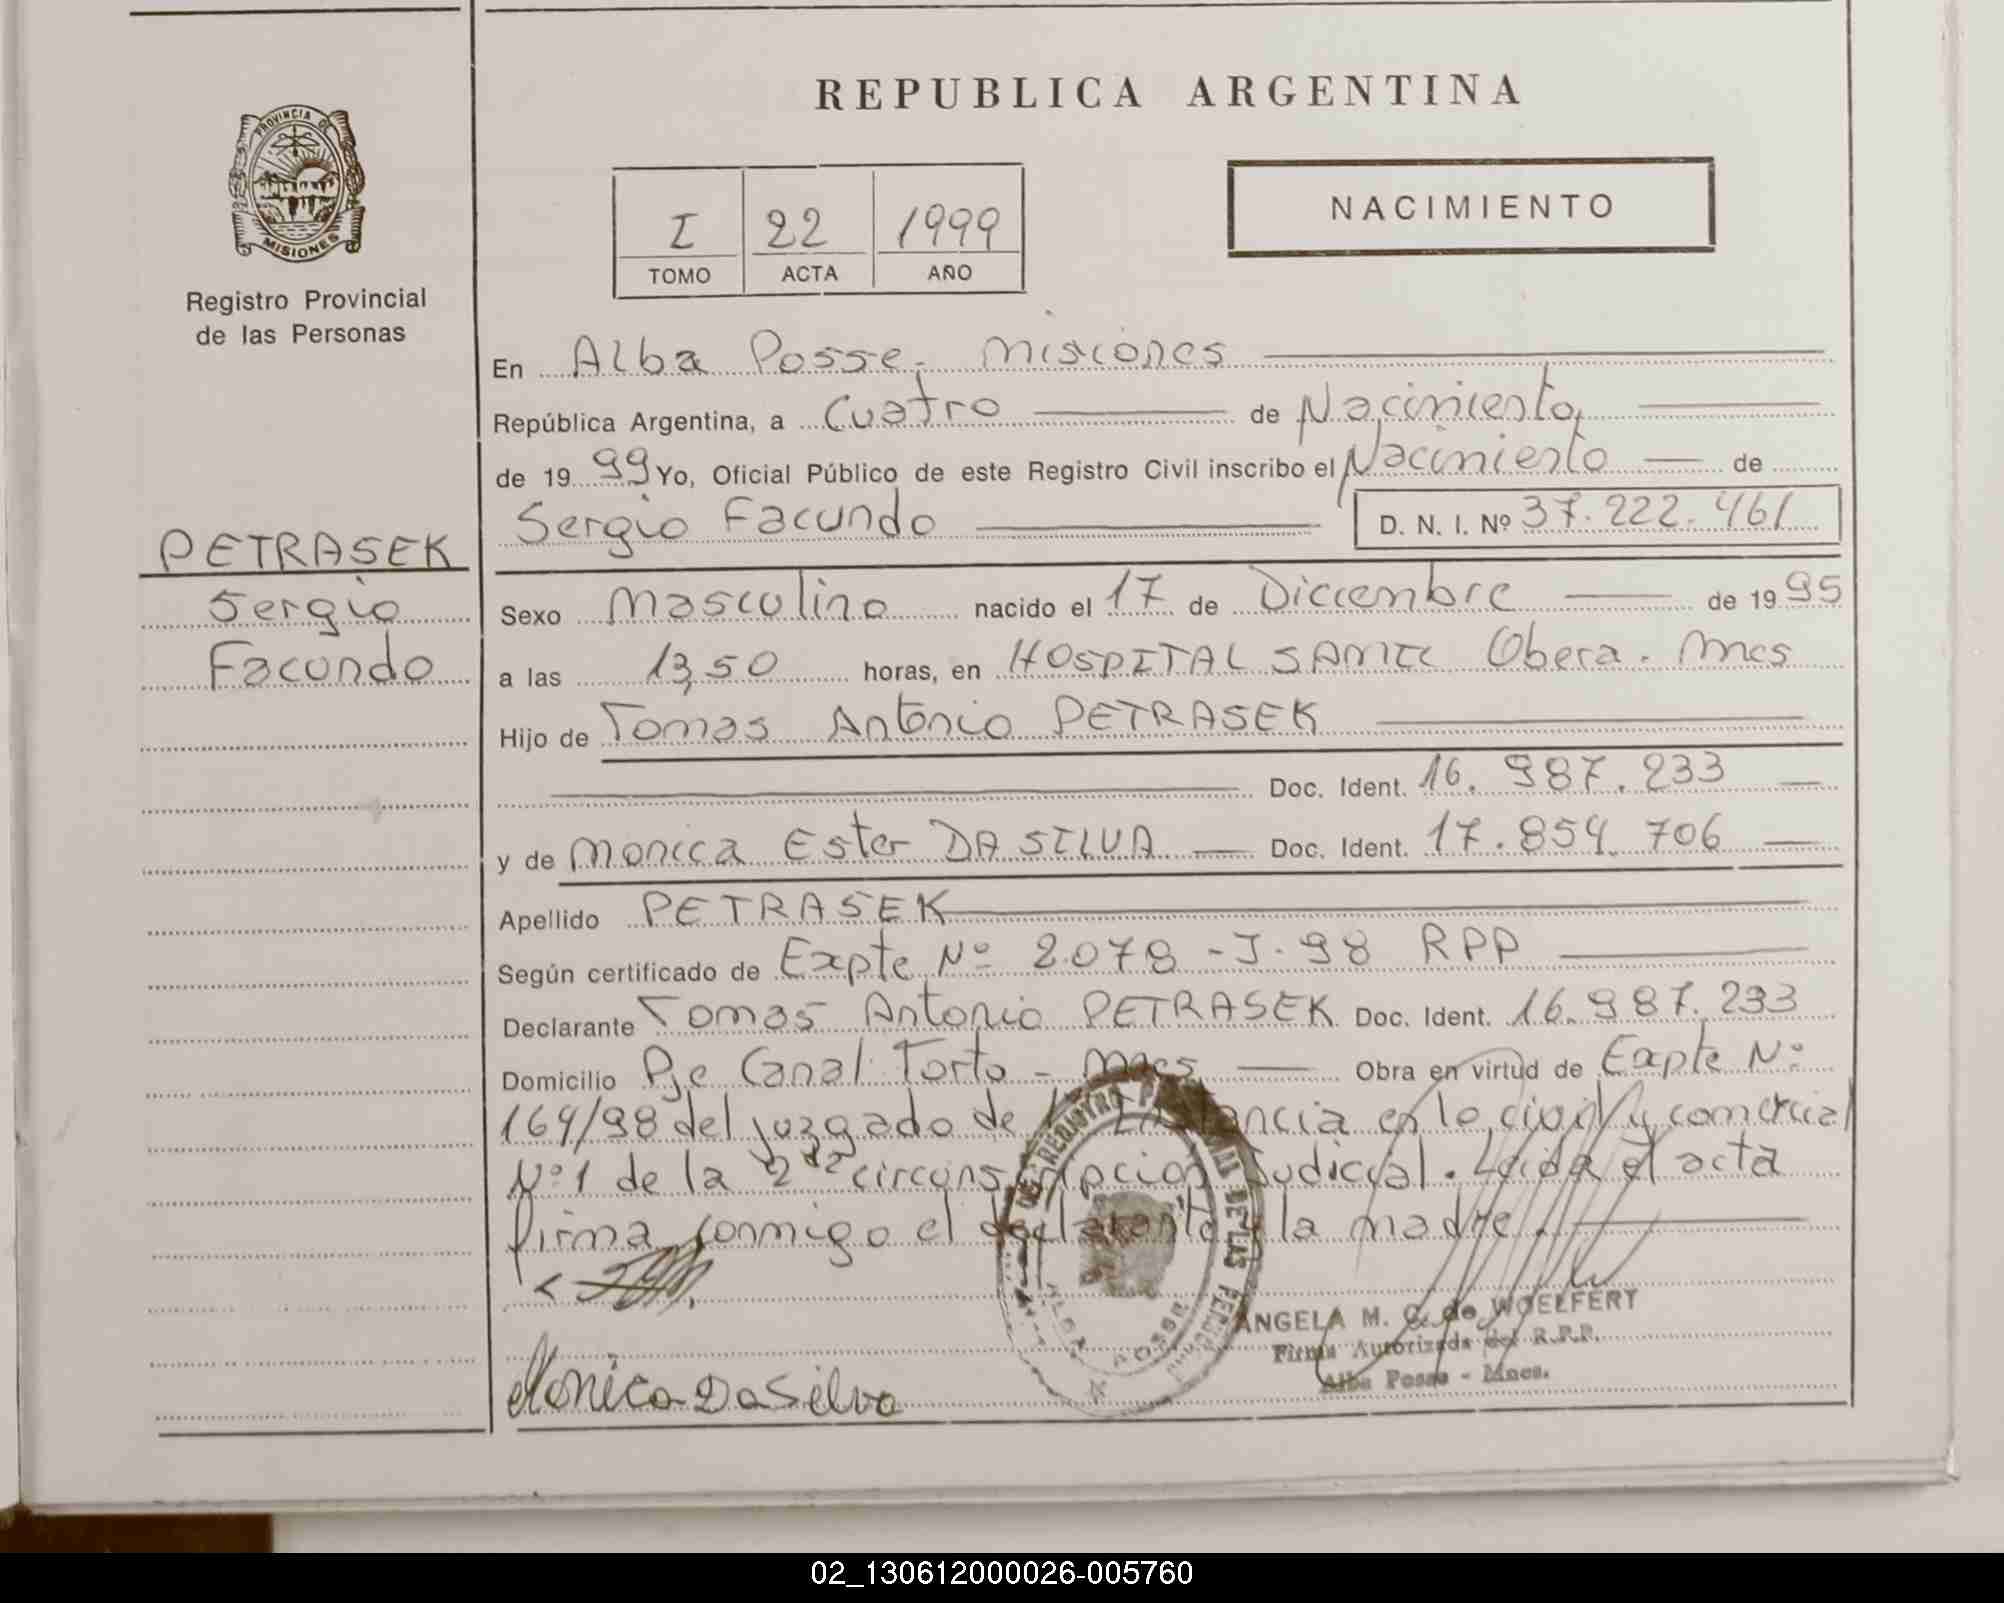 REPUBLICA ARGENTINA
PROVINCIA DE
MISIONES
Registro Provincial
de las Personas
I 22 1999
TOMO ACTA AÑO
NACIMIENTO
En Alba Posse. Misiones
República Argentina, a Cuatro de Nacimiento,
de 19 99 Yo, Oficial Público de este Registro Civil inscribo el Nacimiento de
Sergio Facundo D. N. I. Nº 37.222.461
PETRASEK
Sergio
Facundo
Sexo Masculino nacido el 17 de Diciembre de 19 95
a las 13,50 horas, en HOSPITAL SAMIC Obera. Mnes
Hijo de Tomas Antonio PETRASEK
Doc. Ident. 16.987.233
y de Monica Ester DA SILVA Doc. Ident. 17.854.706
Apellido PETRASEK
Según certificado de Expte Nº 2078-J-98 RPP
Declarante Tomas Antonio PETRASEK Doc. Ident. 16.987.233
Domicilio Pje Canal Torto - Mnes Obra en virtud de Expte Nº
164/98 del juzgado de Instancia en lo civil y comercial
Nº1 de la 2da circunscripcion Judicial. Leida el acta
firma conmigo el declarante y la madre.
REGISTRO DE LAS
ALBA POSSE
Monica Da Silva
ANGELA M. G. de WOELFERT
Firma Autorizada del R.P.P.
Alba Posse - Mnes.
02_130612000026-005760